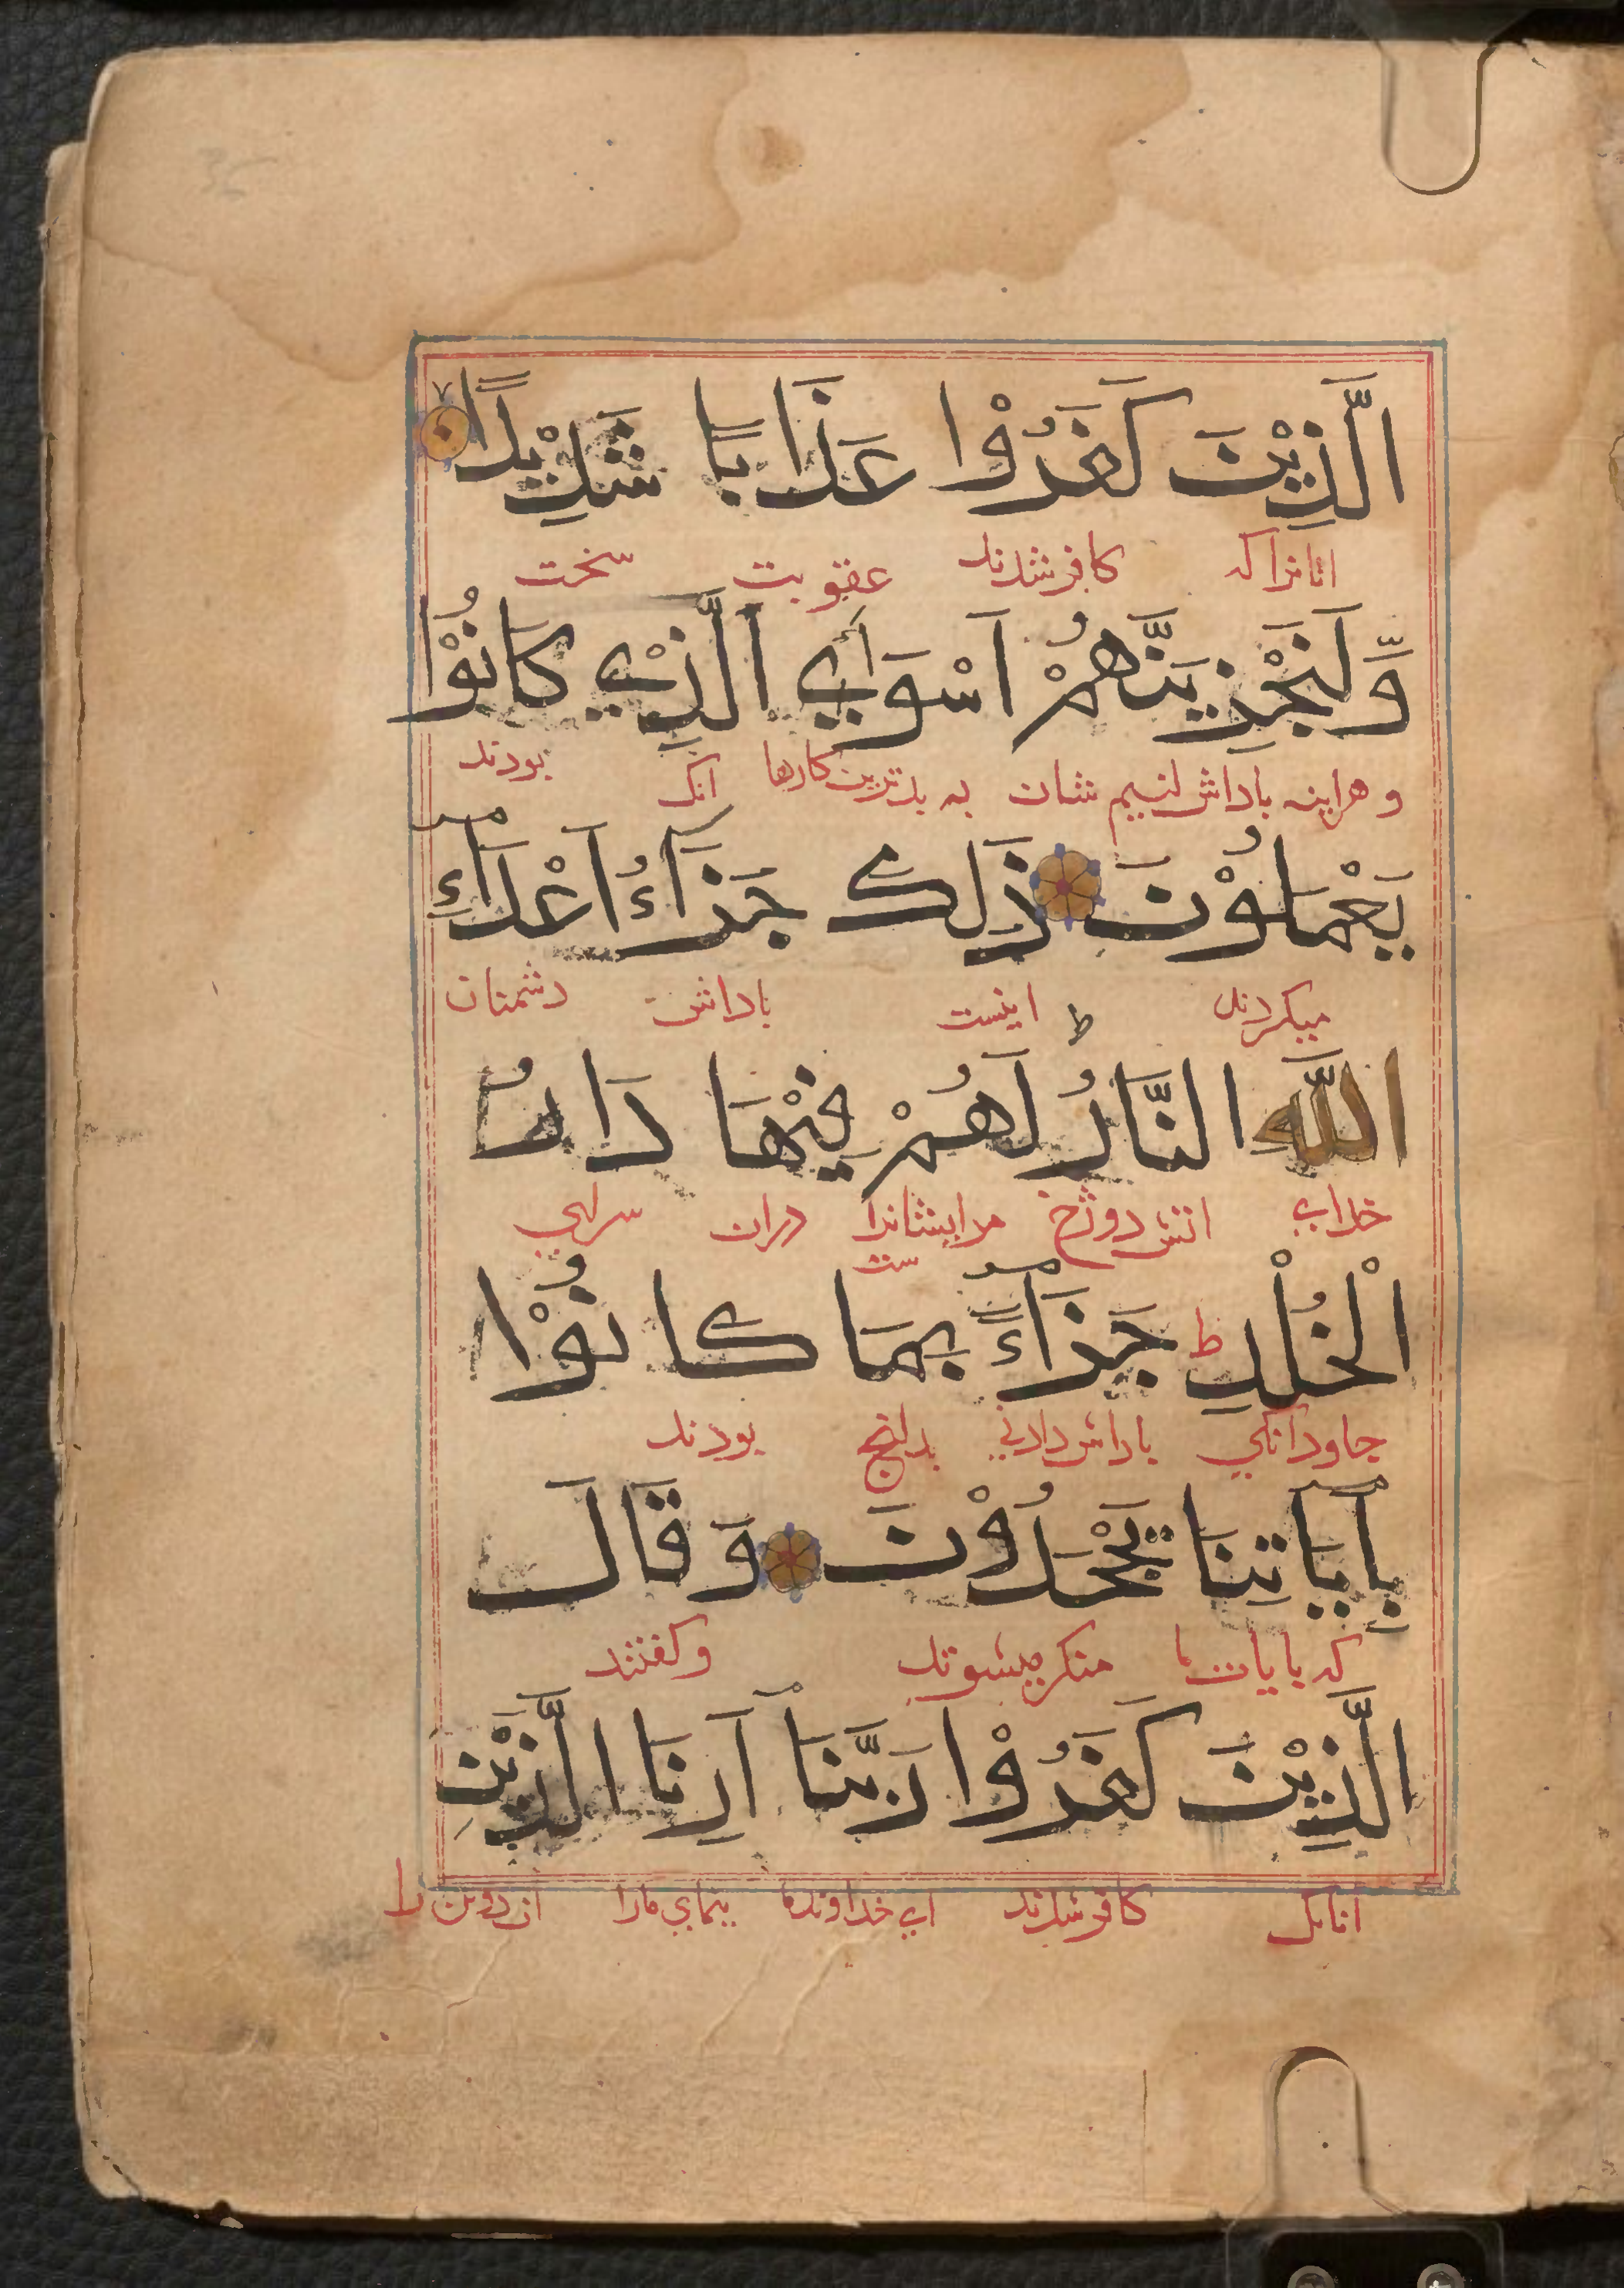 الَّذِيْنَ كَفَرُوْا عَذَابًا شَدِيْدًا
انانرا که کافر شدند عقوبت سخت
وَّلَنَجْزِيَنَّهُمْ اَسْوَاَ الَّذِيْ كَانُوْا
و هراینه باداش لنیم شان به بدترین کارها آنک بودند
يَعْمَلُوْنَ ذَلِكَ جَزَآءُ اَعْدَآءِ
میکردند اینست باداش دشمنان
اللَّهِ النَّارُ لَهُمْ فِيْهَا دَارُ
خدای اتش دوزخ مرایشانرا ست دران سرای
الْخُلْدِ ط جَزَآءً بِمَا كَانُوْا
جاودانکی باداش دادنی بدانچ بودند
بِاٰيَاتِنَا يَجْحَدُوْنَ وَقَالَ
که بایات ما منکر میشوند وکفتند
الَّذِيْنَ كَفَرُوْا رَبَّنَا اَرِنَا الَّذَيْنِ
انانک کافر شدند ای خداوند ما بنمای مارا ان دوتن را